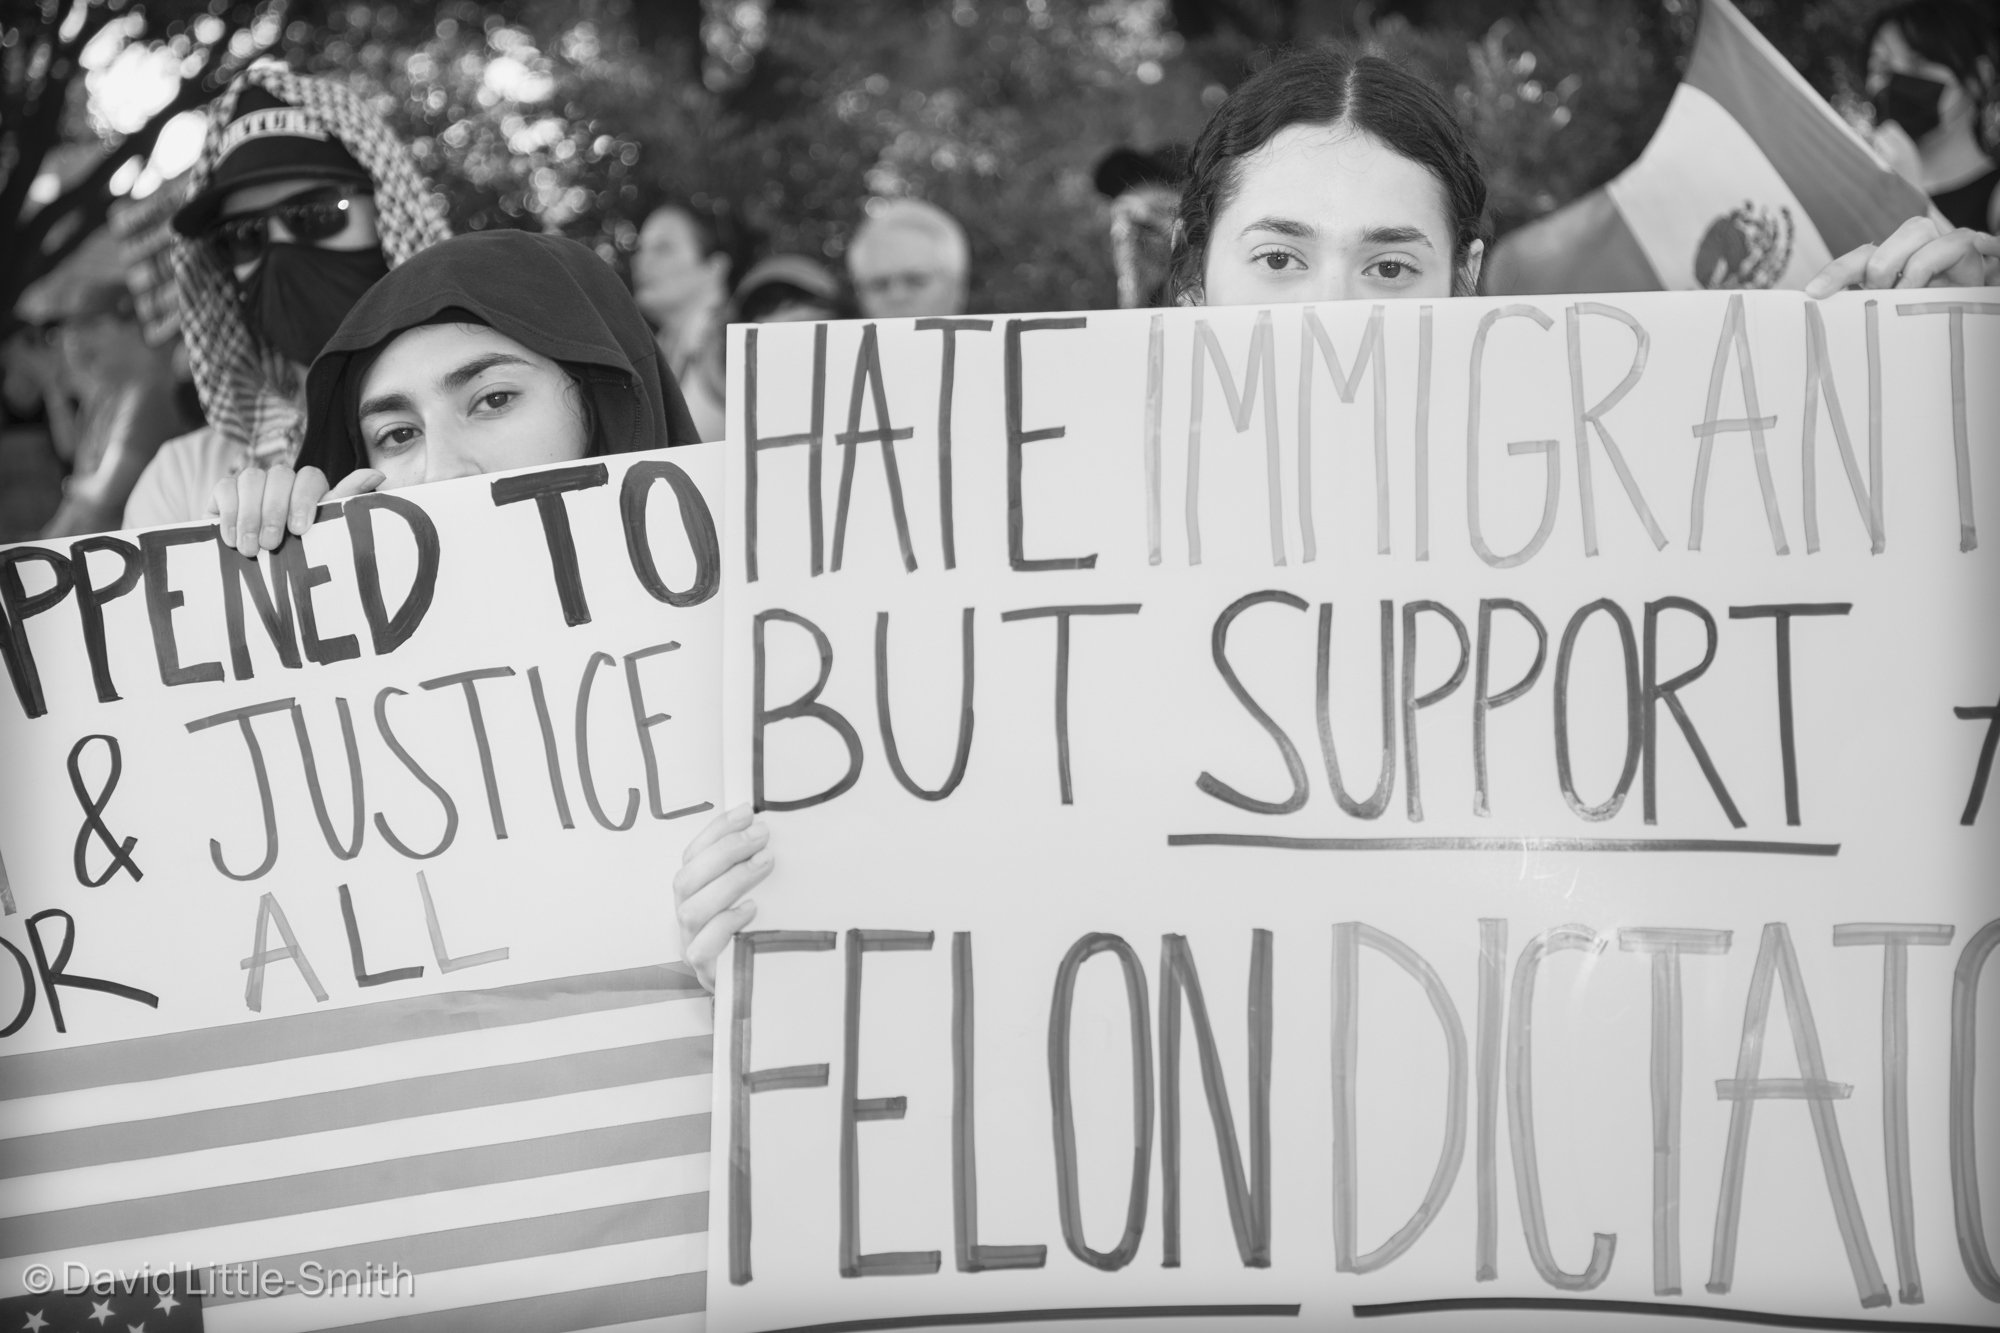 HATE IMMIGRANT
BUT SUPPORT
FELON DICTATO
PPENED TO
& JUSTICE
OR ALL
© David Little-Smith